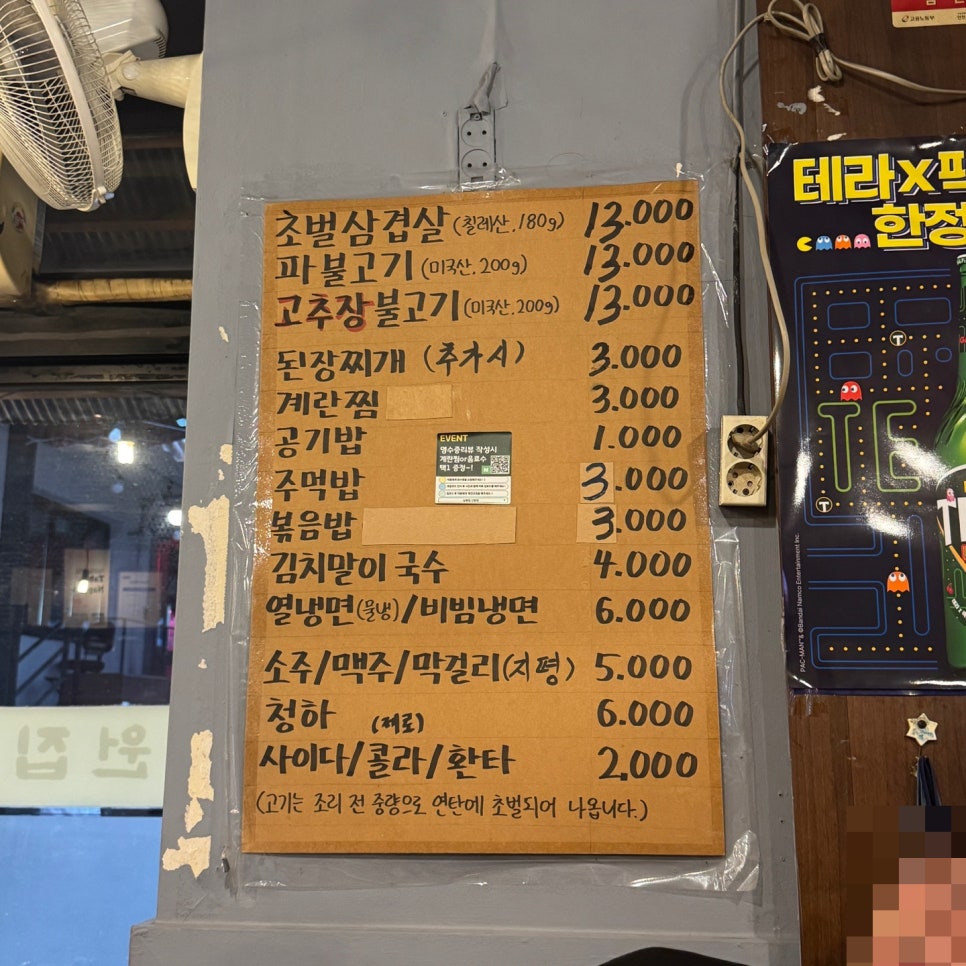 초벌삼겹살 (칠레산, 180g) 13.000
파불고기 (미국산, 200g) 13.000
고추장불고기 (미국산, 200g) 13.000
된장찌개 (추가시) 3.000
계란찜 3.000
공기밥 1.000
주먹밥 3.000
볶음밥 3.000
김치말이 국수 4.000
열냉면(물냉)/비빔냉면 6.000
소주/맥주/막걸리(지평) 5.000
청하 6.000
(제로)
사이다/콜라/환타 2,000
(고기는 조리 전 중량으로 연탄에 초벌되어 나옵니다.)
EVENT
영수증리뷰 작성시
계란찜or음료수
택1 증정~!
N
테라X
한정
TE
PAC-MAN™ & ©Bandai Namco Entertainment Inc.
고용노동부
원집